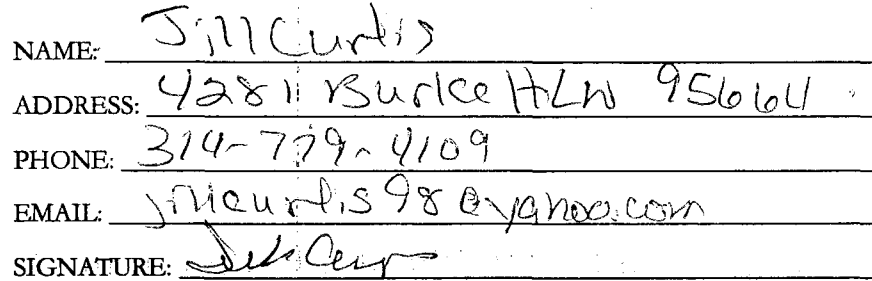 NAME: Jill Curtis
ADDRESS: 4281 Burke HLN 95664
PHONE: 314-779-4109
EMAIL: jillcurtis98@yahoo.com
SIGNATURE: Jill Curtis